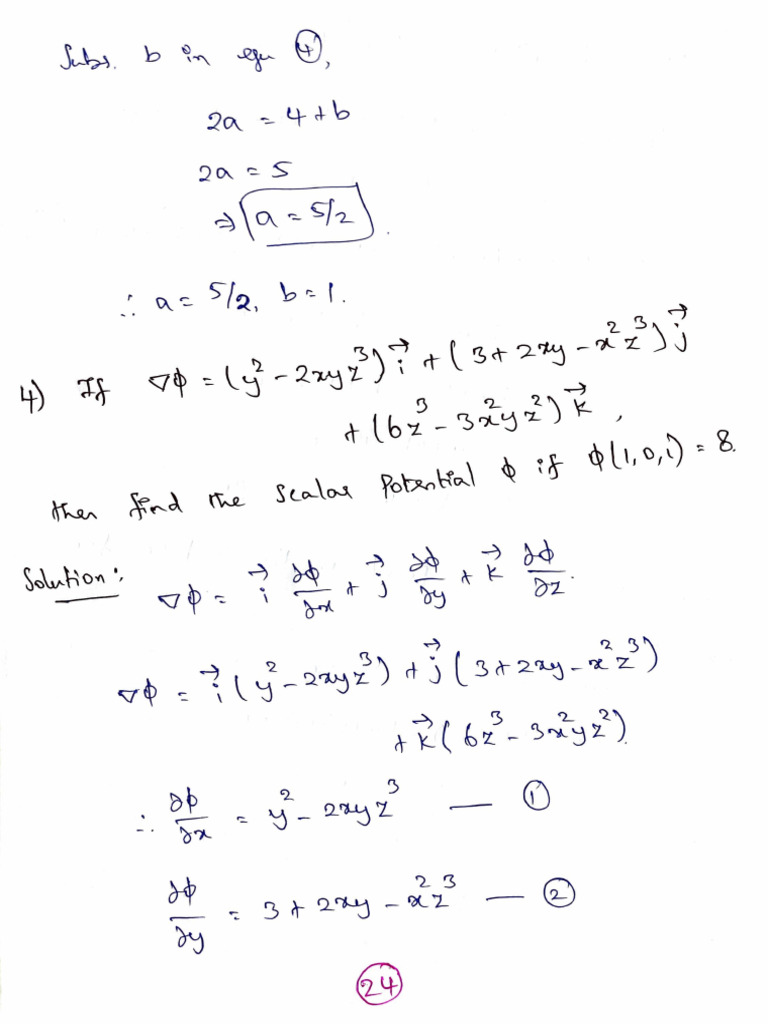 Subs. b in equ ④,
2a = 4 + b
2a = 5
⇒ a = 5/2.
∴ a = 5/2, b = 1.
4) If ∇ϕ = (y² - 2xyz³) i⃗ + (3 + 2xy - x²z³) j⃗
+ (6z³ - 3x²yz²) k⃗,
then find the scalar Potential ϕ if ϕ(1,0,1) = 8.
Solution:
∇ϕ = i⃗ ∂ϕ/∂x + j⃗ ∂ϕ/∂y + k⃗ ∂ϕ/∂z.
∇ϕ = i⃗ (y² - 2xyz³) + j⃗ (3 + 2xy - x²z³)
+ k⃗ (6z³ - 3x²yz²).
∴ ∂ϕ/∂x = y² - 2xyz³ — ①
∂ϕ/∂y = 3 + 2xy - x²z³ — ②
24